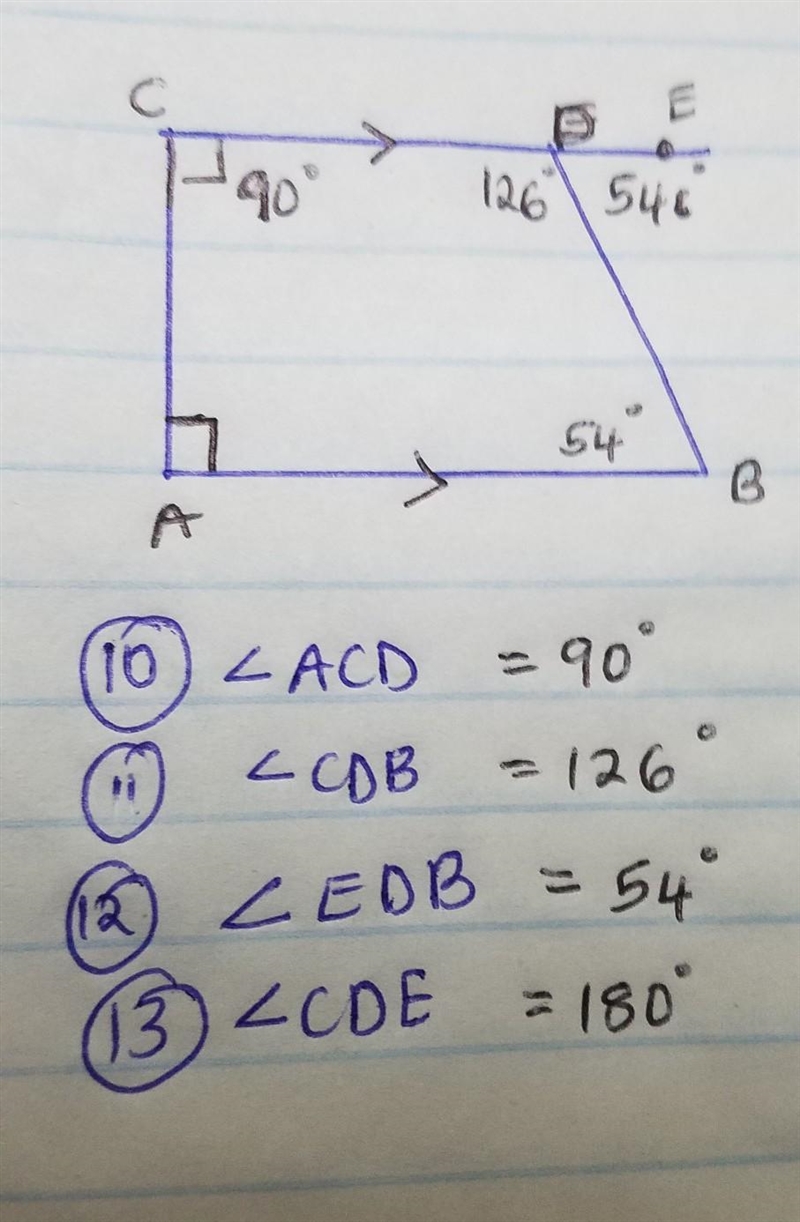 C
D
E
90°
126°
54°
54°
A
B
10 ∠ACD = 90°
11 ∠CDB = 126°
12 ∠EDB = 54°
13 ∠CDE = 180°